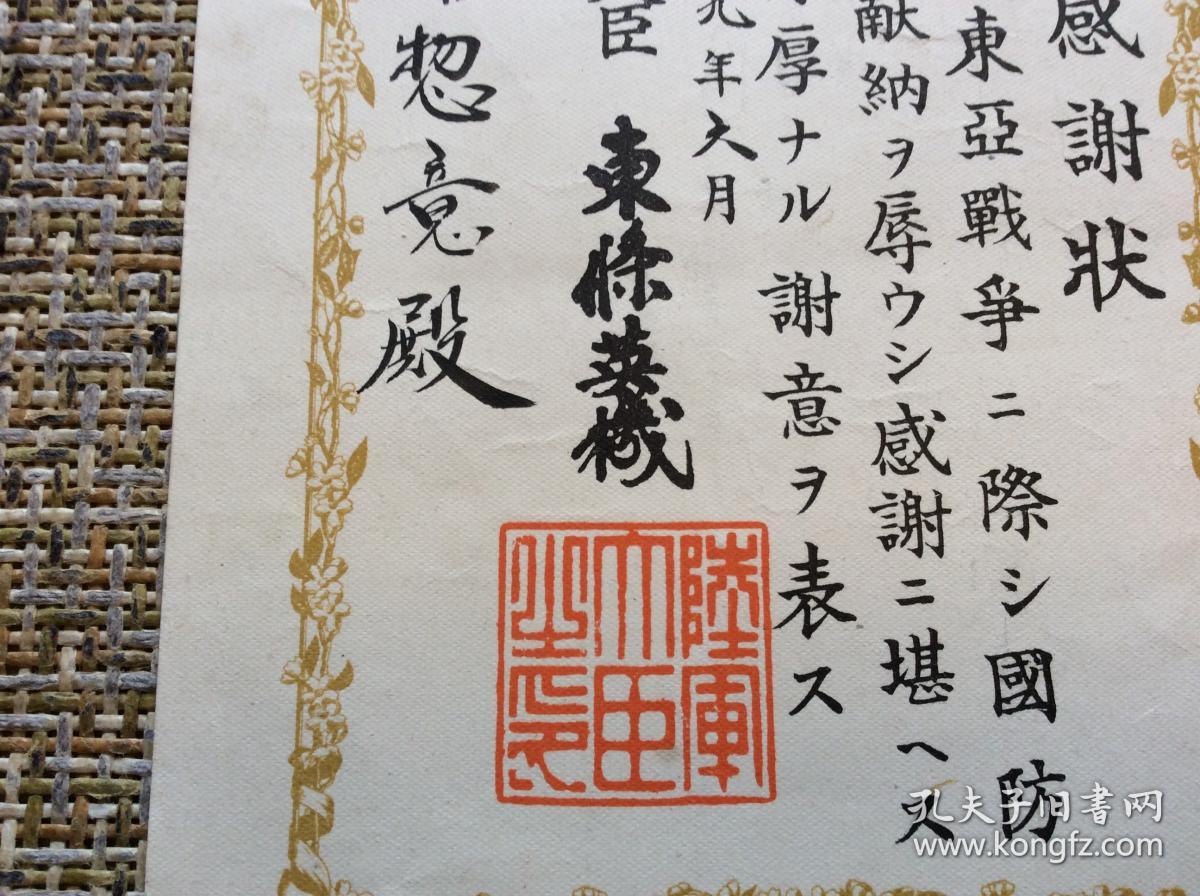 感謝狀
東亞戰爭ニ際シ國防
献納ヲ辱ウシ感謝ニ堪ヘス
厚ナル謝意ヲ表ス
九年六月
臣 東條英機
惣意殿
陸軍
大臣
之印
孔夫子旧书网
www.kongfz.com